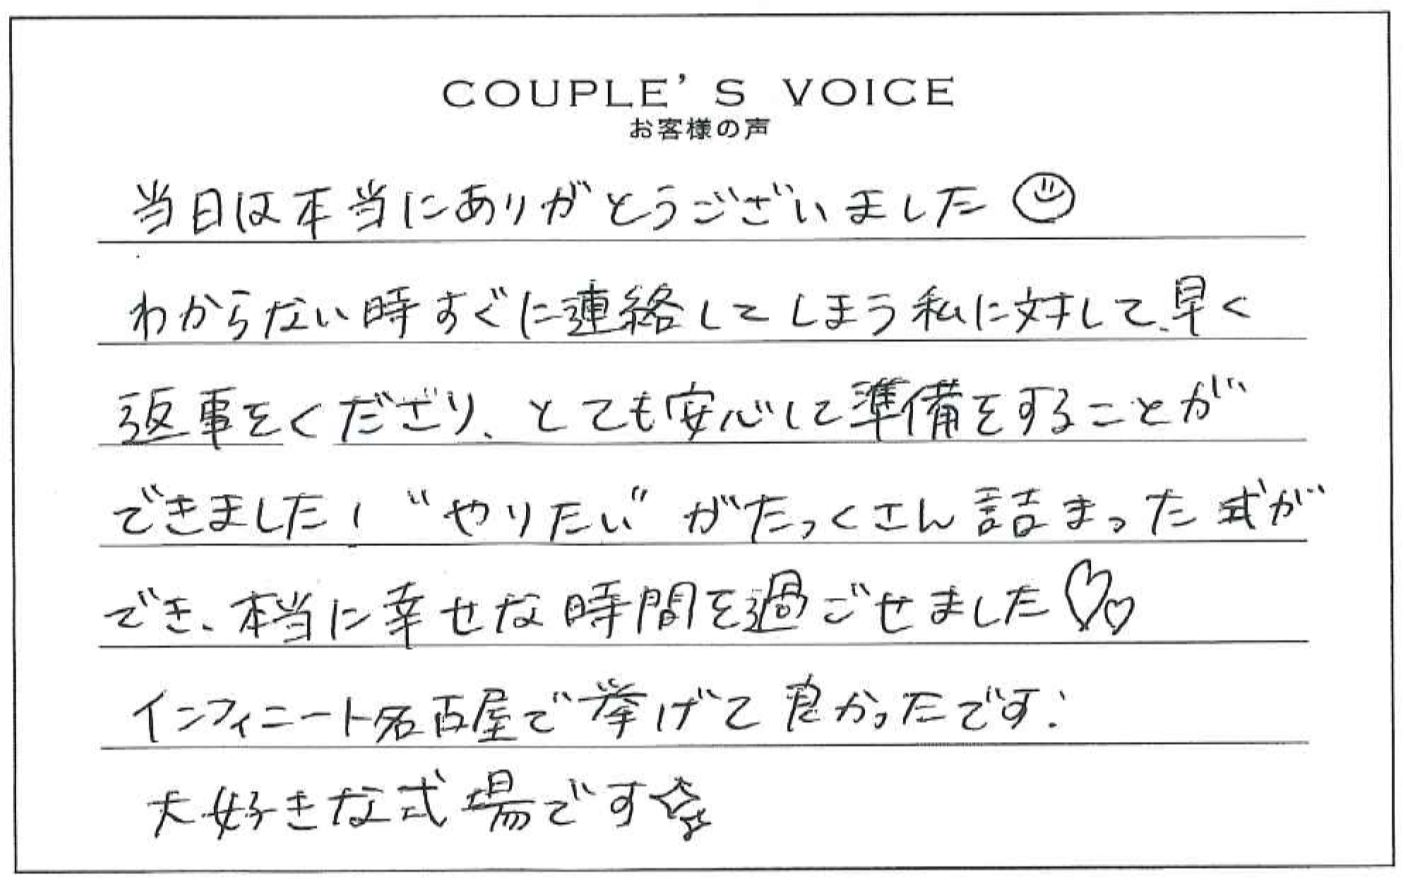 COUPLE'S VOICE
お客様の声
当日は本当にありがとうございました
わからない時すぐに連絡してしまう私に対して、早く
返事をくださり、とても安心して準備をすることが
できました! “やりたい” がたっくさん詰まった式が
でき、本当に幸せな時間を過ごせました
インフィニート名古屋で挙げて良かったです!
大好きな式場です